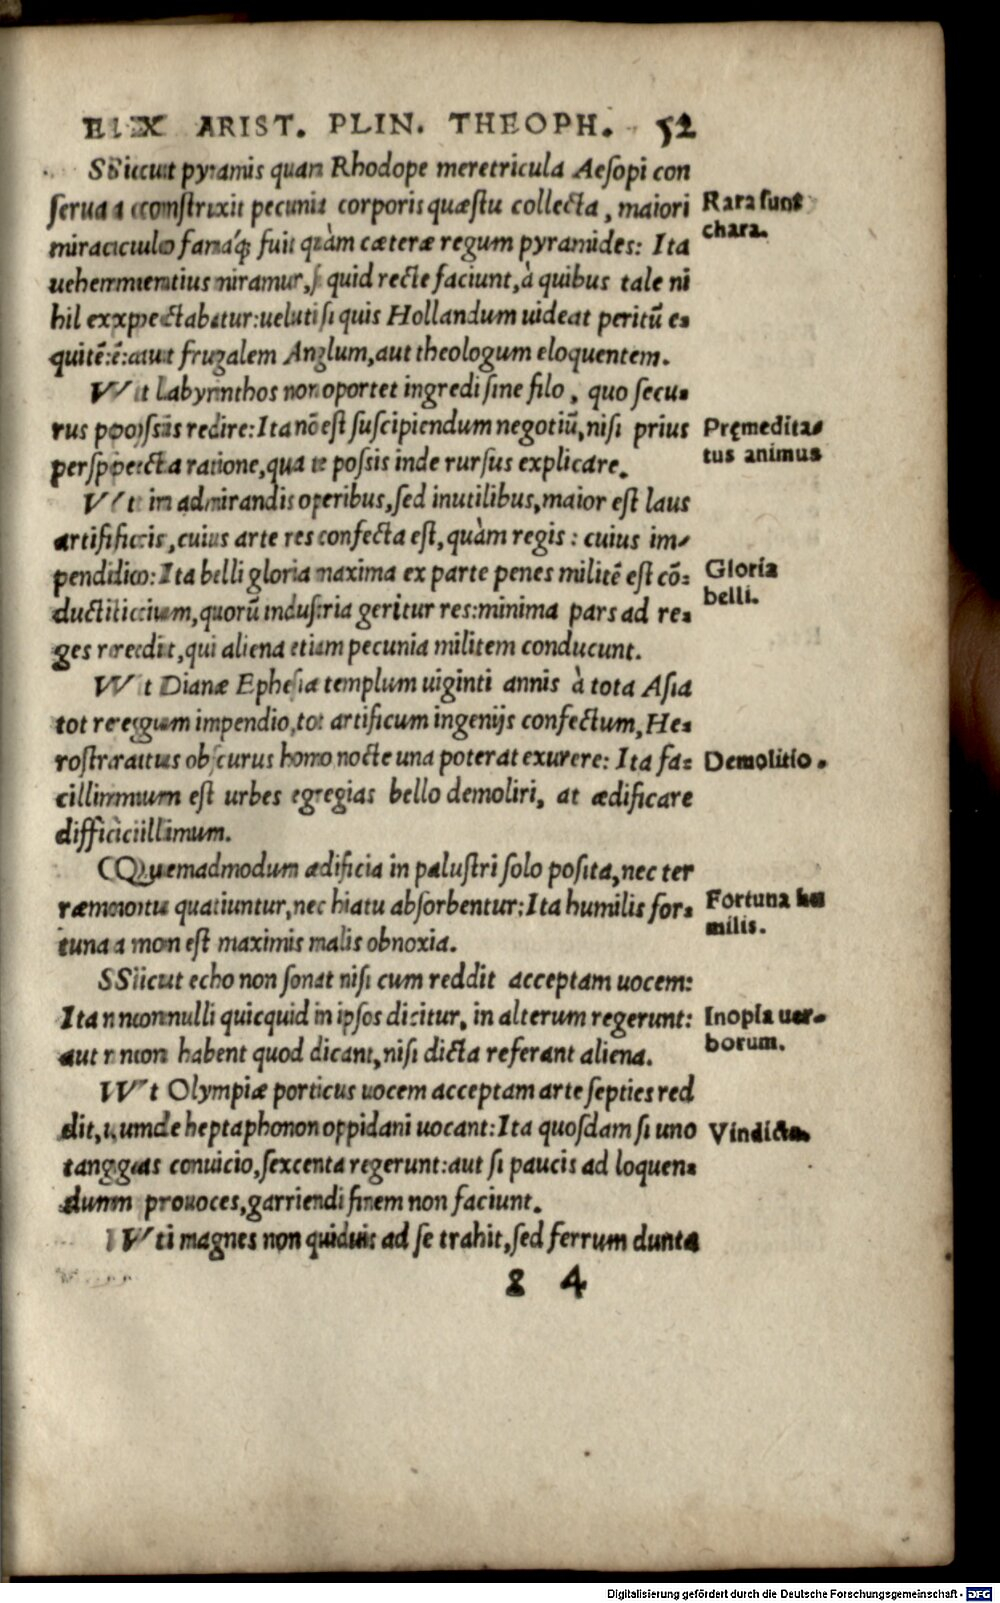 EX ARIST. PLIN. THEOPH. 52
Sicut pyramis quam Rhodope meretricula Aesopi con
serua construxit pecunia corporis quæstu collecta, maiori
Rara sunt
chara.
miraculo famáq́; fuit quàm cæteræ regum pyramides: Ita
uehementius miramur, si quid recte faciunt, à quibus tale ni
hil expectabatur: ueluti si quis Hollandum uideat peritũ e-
quitẽ: aut frugalem Anglum, aut theologum eloquentem.
Vt Labyrinthos non oportet ingredi sine filo, quo secu-
rus possis redire: Ita nõ est suscipiendum negotiũ, nisi prius
Pręmedita-
tus animus
perspecta ratione, qua te possis inde rursus explicare.
Vt in admirandis operibus, sed inutilibus, maior est laus
artificis, cuius arte res confecta est, quàm regis: cuius im-
pendio: Ita belli gloria maxima ex parte penes militẽ est cõ-
Gloria
belli.
ductitium, quorũ industria geritur res: minima pars ad re-
ges redit, qui aliena etiam pecunia militem conducunt.
Vt Dianæ Ephesiæ templum uiginti annis à tota Asia
tot regum impendio, tot artificum ingenijs confectum, He-
rostratus obscurus homo nocte una poterat exurere: Ita fa-
Demolitio.
cillimum est urbes egregias bello demoliri, at ædificare
difficillimum.
Quemadmodum ædificia in palustri solo posita, nec ter
ræmotu quatiuntur, nec hiatu absorbentur: Ita humilis for-
Fortuna hu
milis.
tuna non est maximis malis obnoxia.
Sicut echo non sonat nisi cum reddit acceptam uocem:
Ita nonnulli quicquid in ipsos dicitur, in alterum regerunt:
Inopia uer-
borum.
aut non habent quod dicant, nisi dicta referant aliena.
Vt Olympiæ porticus uocem acceptam arte septies red
dit, unde heptaphonon oppidani uocant: Ita quosdam si uno
Vindicta.
tangas conuicio, sexcenta regerunt: aut si paucis ad loquen-
dum prouoces, garriendi finem non faciunt.
Vti magnes non quiduis ad se trahit, sed ferrum dunta
g 4
Digitalisierung gefördert durch die Deutsche Forschungsgemeinschaft - DFG